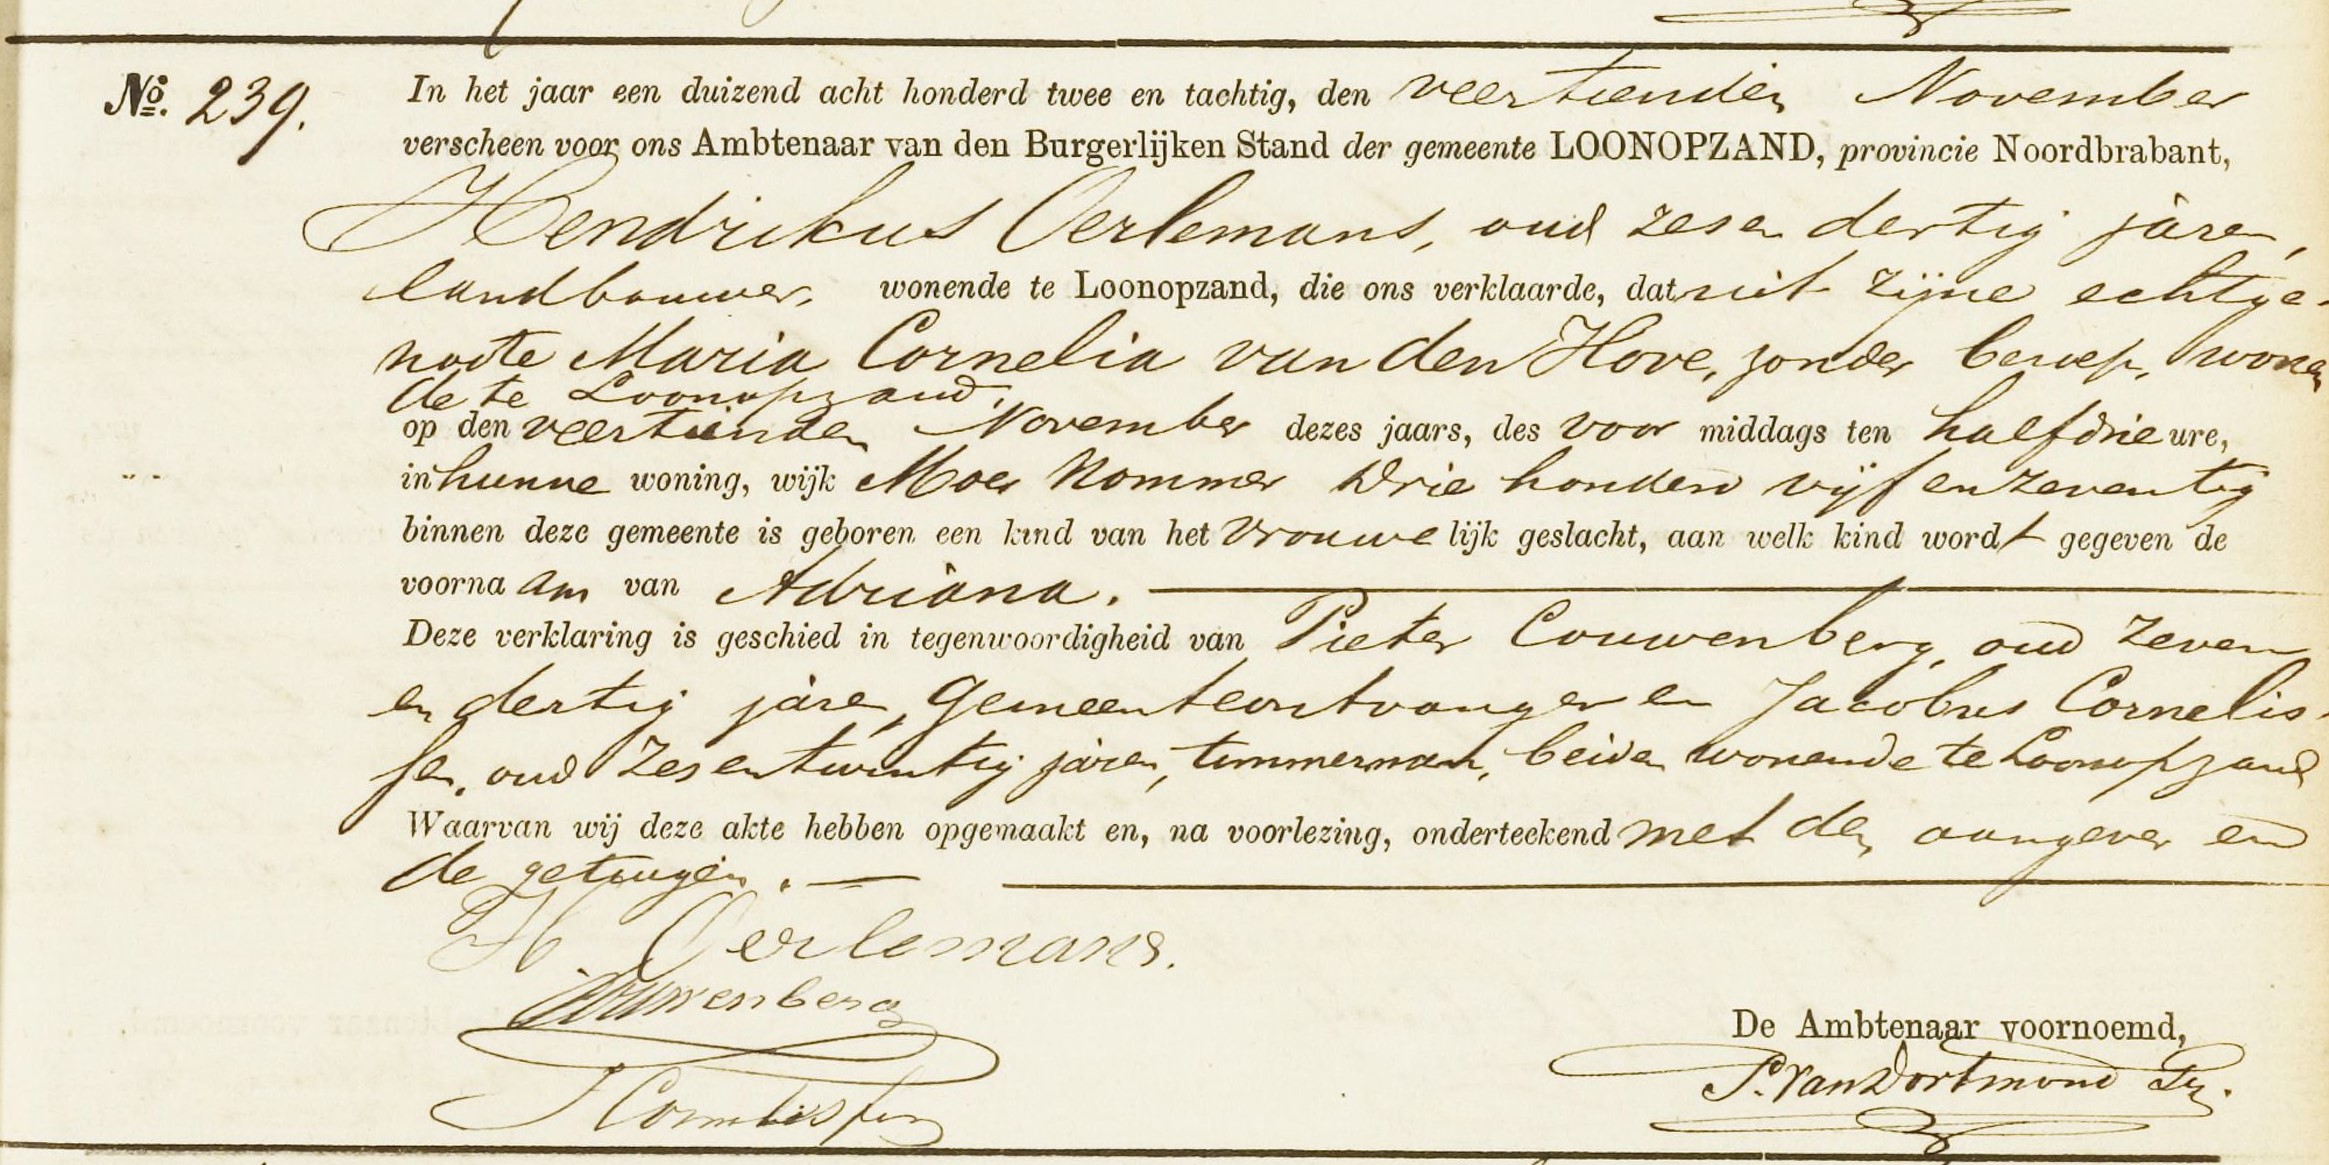 No. 239. In het jaar een duizend acht honderd twee en tachtig, den veertienden November
verscheen voor ons Ambtenaar van den Burgerlijken Stand der gemeente LOONOPZAND, provincie Noordbrabant,
Hendrikus Oerlemans, oud zes en dertig jaren,
landbouwer, wonende te Loonopzand, die ons verklaarde, dat uit zijne echtge-
noote Maria Cornelia van den Hove, zonder beroep, wonen
de te Loonopzand,
op den veertienden November dezes jaars, des voor middags ten half drie ure,
in hunne woning, wijk Moer Nommer drie honderd vijf en zeventig
binnen deze gemeente is geboren een kind van het vrouwe lijk geslacht, aan welk kind wordt gegeven de
voornaam van Adriana.
Deze verklaring is geschied in tegenwoordigheid van Pieter Couwenberg, oud zeven
en dertig jaren, Gemeenteontvanger en Jacobus Cornelis-
sen, oud zes en twintig jaren, timmerman, beiden wonende te Loonopzand
Waarvan wij deze akte hebben opgemaakt en, na voorlezing, onderteekend met den aangever en
de getuigen.
H. Oerlemans.
Couwenberg
J Cornelissen
De Ambtenaar voornoemd,
P. van Dortmond Pz.